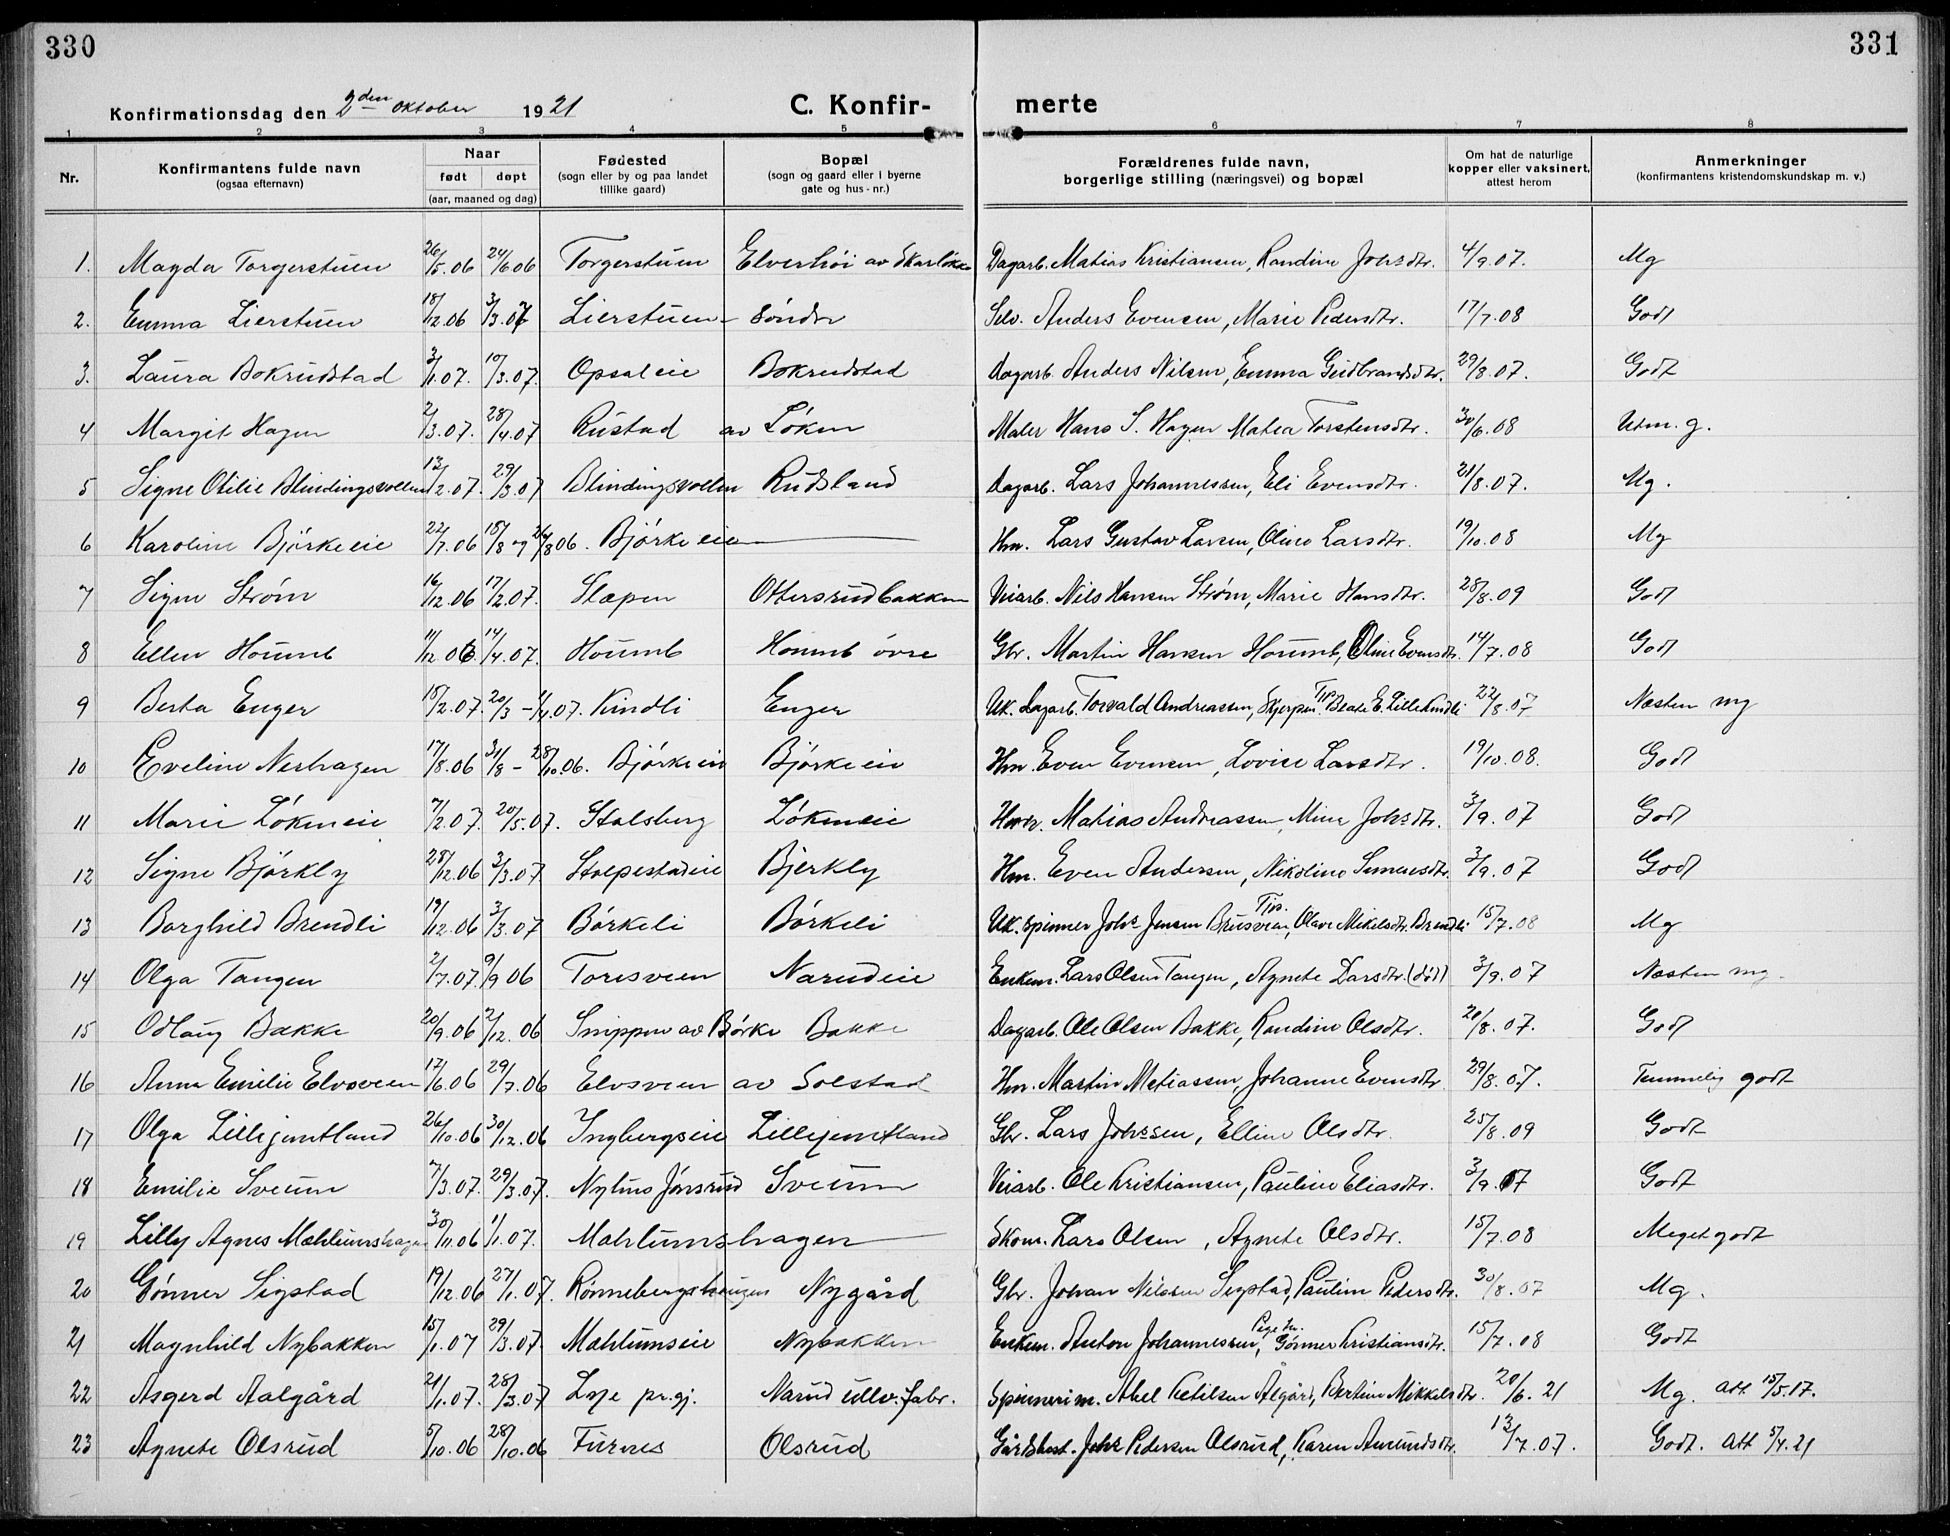 330
331
Konfirmationsdag den 2den oktober 1921
C. Konfir-
merte
1 2 3 4 5 6 7 8
Nr.
Konfirmantens fulde navn
(ogsaa efternavn)
Naar
født døpt
(aar, maaned og dag)
Fødested
(sogn eller by og paa landet
tillike gaard)
Bopæl
(sogn og gaard eller i byerne
gate og hus-nr.)
Forældrenes fulde navn,
borgerlige stilling (næringsvei) og bopæl
Om hat de naturlige
kopper eller vaksinert,
attest herom
Anmerkninger
(konfirmantens kristendomskundskap m. v.)
1. Magda Torgerstuen 26/5.06 24/6 06 Torgerstuen Elverhöi av Dagarb. Matias Kristiansen, Randine Johsdtr. 4/9.07. Mg
2. Emma Lierstuen 18/2.06 3/3.06 Lierstuen söndr Selv. Anders Evensen, Marie Pedersdtr. 17/7.08 Godt
3. Laura Bokrudstad 3/1.07. 10/3.07. Opsaleie Bokrudstad Dagarb. Anders Nilsen, Emma Gudbrandsdtr. 29/8.07. Godt
4 Margit Hagen 2/3.07. 28/4.07 Rustad av Löken Maler Hans S. Hagen Matea Torstensdtr. 30/6.08 Utm. g.
5 Signe Otilie Blindingsvollen 13/2.07. 29/3.07 Blindingsvollen Rudsland Dagarb. Lars Johannessen, Eli Evensdtr. 21/8.07. Mg.
6 Karoline Björkeeie 22/7.06 18/8 og 26/8 06. Björkeeie Hm. Lars Gustav Larsen, Oline Larsdtr. 19/10.08 Mg
7 Signe Ström 16/12.06 17/2.07. Slæpen Ottersrudbakken Veiarb. Nils Hansen Ström, Marie Hansdtr. 28/8.09 Godt
8 Ellen Houmb 11/12.06 14/4.07. Houmb Houmb övre Gbr. Martin Hansen Houmb, Oline Evensdtr. 14/7.08 Godt
9 Berta Enger 18/2.07. 20/3 - 1/4.07. Kindli Enger Uk. Dagarb. Torvald Andreassen, Skjerpen. Tje. Beate E. Lillekindli 22/8.07 Næsten mg
10 Eveline Neshagen 17/8.06 31/8 - 28/10.06. Björkeeie Björkeeie Hm. Even Evensen, Lovise Larsdtr. 19/10.08. Godt
11 Marie Lökeneie 7/2.07. 20/5.07. Stalsberg Lökeneie Matias Andreassen, Mina Johsdtr. 3/9.07 Godt
12 Signe Björkly 28/12.06 3/3.07 Stolpestadeie Bjerkly Hm. Even Andersen, Nikoline Simensdtr. 3/9.07 Godt
13 Borghild Brendli 19/12.06 3/3.07 Börkeli Börkeli Uk. Spinner Johs Jensen Brusveen, Tje. Olave Mikelsdtr. Brendli 15/7.08 Mg
14 Olga Tangen 2/7.07. 9/9 06 Toresveen Narudeie Enkem. Lars Olsen Tangen, Agnete Larsdtr. (död) 3/9.07 Næsten mg.
15 Odlaug Bakke 20/9.06 2/12.06 Snippen av Börke Bakke Dagarb. Ole Olsen Bakke, Randine Olsdtr. 20/8.07. Godt
16 Anna Emilie Elvsveen 17/6.06 29/7.06 Elvsveen av Solstad Hm. Martin Matiassen, Johanne Evensdtr. 29/8.07. Temmelig godt
17 Olga Lillejemtland 26/10.06 30/12.06 Ingbergseie Lillejemtland Gbr. Lars Johssen, Elline Olsdtr. 25/8.09 Godt
18 Emilie Sveum 7/3.07. 29/3.07. Nylins Jönsrud Sveum Veiarb. Ole Kristiansen, Pauline Eliasdtr. 3/9.07 Godt
19 Lilly Agnes Mæhlumshagen 30/11.06 1/1.07. Mæhlumshagen Skom. Lars Olsen, Agnete Olsdtr. 15/7.08 Meget godt
20 Gönner Sigstad 19/12.06 27/1.07. Rönnebergshaugen Nygård Gbr. Johan Nilssen Sigstad, Pauline Pedersdtr. 30/8.07 Mg.
21 Magnhild Nybakken 15/1.07 29/3.07. Mæhlumseie Nybakken Enkem. Anton Johannessen, Gönner Kristiansdtr. 15/7.08 Godt
22 Asgerd Aalgård 21/1.07. 28/3.07 Lye pr.gj. Narud ullv.fabr. Spinnerim. Abel Ketilsen Ålgård, Bertine Mikkelsdtr. 20/6.21 Mg. Att 15/5.17.
23 Agnete Olsrud 5/10.06 28/10.06 Furnes Olsrud Gårdbest. Johs Pedersen Olsrud, Karen Amundsdtr. 13/7.07. Godt. Att 5/4.21